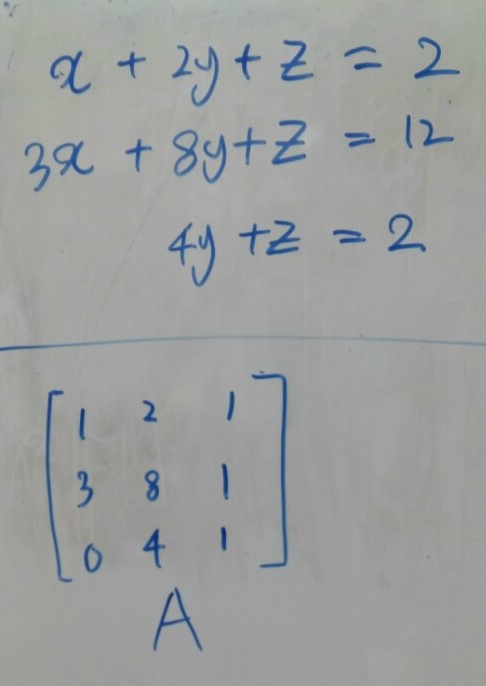 x + 2y + z = 2
3x + 8y + z = 12
4y + z = 2
1 2 1
3 8 1
0 4 1
A